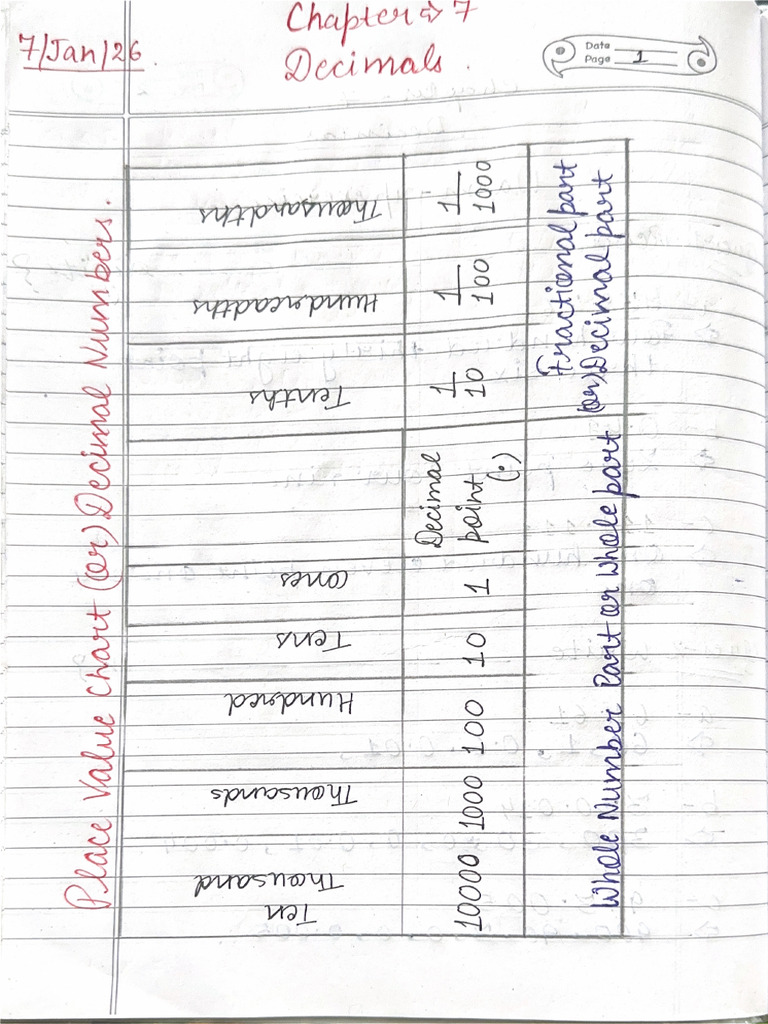 7/Jan/26
Chapter ⇒ 7
Decimals.
Date
Page 1
Place Value Chart (or) Decimal Numbers.
Ten Thousand
Thousands
Hundred
Tens
ones
Tenths
Hundreadths
Thousandths
10000
1000
100
10
1
Decimal point (.)
1/10
1/100
1/1000
Whole Number Part or Whole part
Fractional part
(or) Decimal part